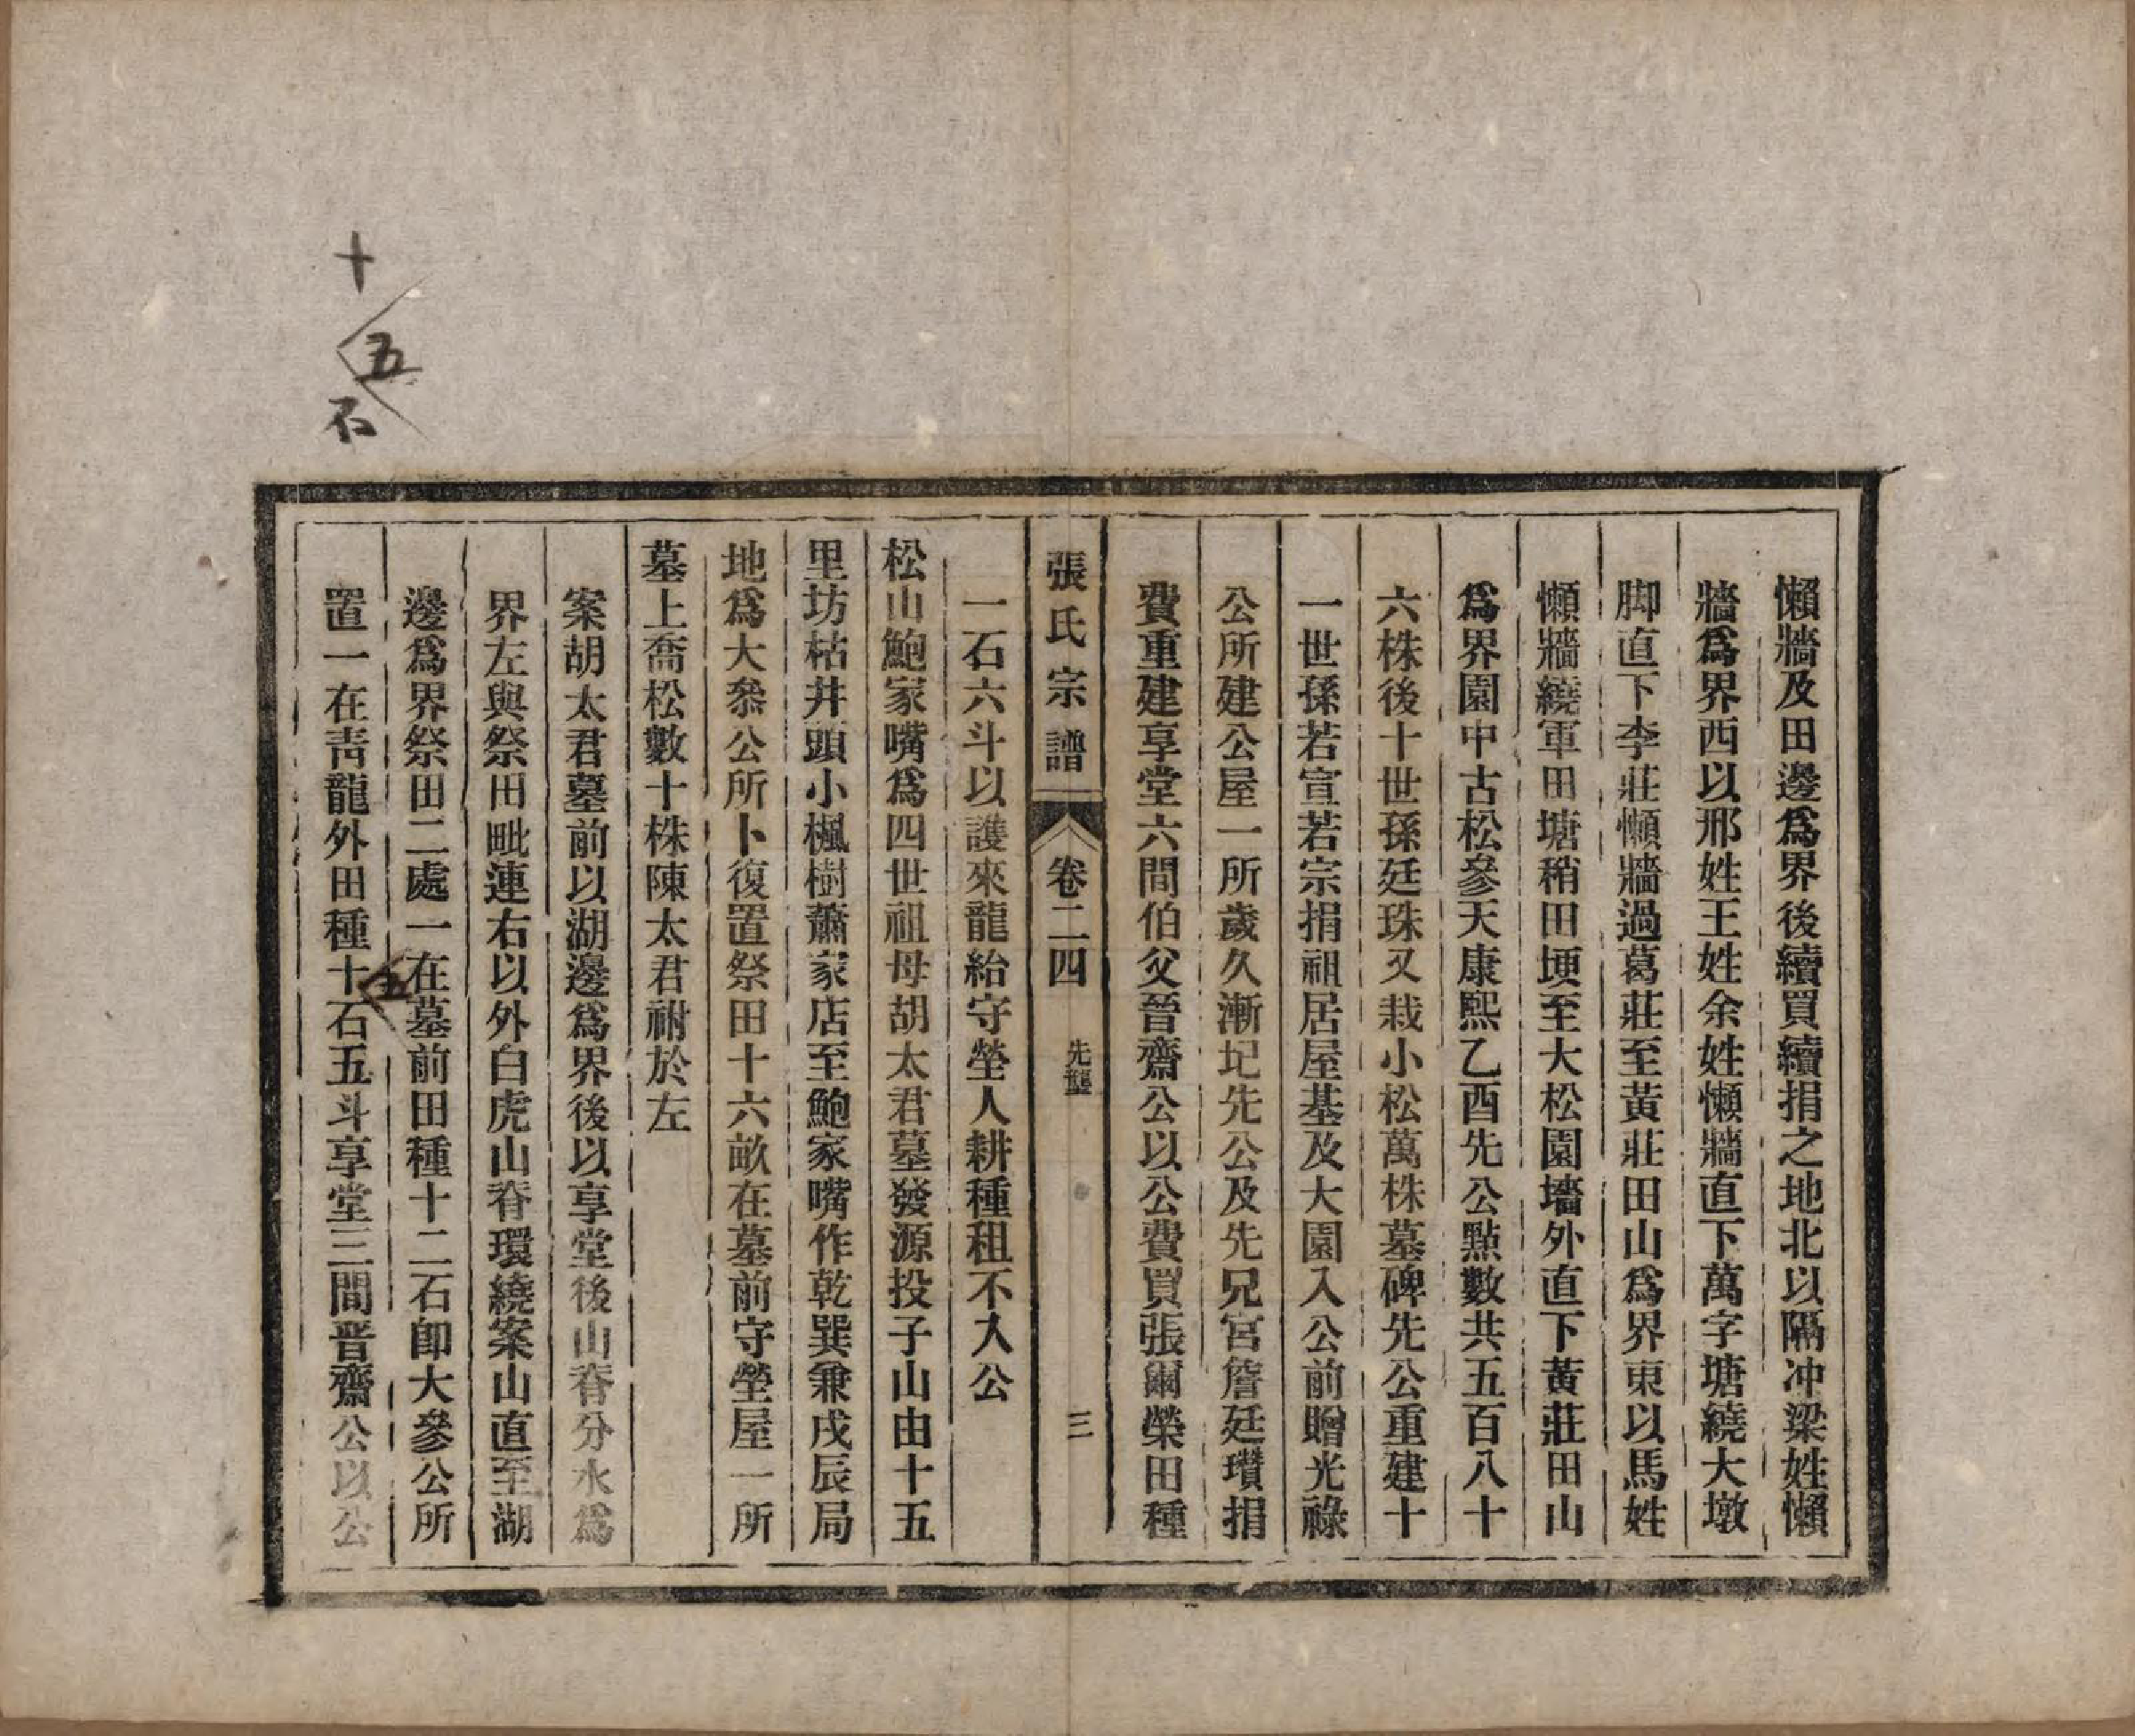 懶牆及田邊爲界後續買續捐之地北以隔冲梁姓懶
牆爲界西以邢姓王姓余姓懶牆直下萬字塘繞大墩
脚直下李莊懶牆過葛莊至黃莊田山爲界東以馬姓
懶牆繞軍田塘稍田埂至大松園墻外直下黃莊田山
爲界園中古松參天康熙乙酉先公點數共五百八十
六株後十世孫廷珠又栽小松萬株墓碑先公重建十
一世孫若宣若宗捐祖居屋基及大園入公前贈光祿
公所建公屋一所歲久漸圮先公及先兄宮詹廷瓚捐
費重建享堂六間伯父晉齋公以公費買張爾榮田種
張氏宗譜
卷二四
先壟
三
一石六斗以護來龍給守塋人耕種租不入公
松山鮑家嘴爲四世祖母胡太君墓發源投子山由十五
里坊枯井頭小楓樹蕭家店至鮑家嘴作乾巽兼戌辰局
地爲大叅公所卜復置祭田十六畝在墓前守塋屋一所
墓上喬松數十株陳太君祔於左
案胡太君墓前以湖邊爲界後以享堂後山脊分水爲
界左與祭田毗連右以外白虎山脊環繞案山直至湖
邊爲界祭田二處一在墓前田種十二石卽大參公所
置一在靑龍外田種十石五斗享堂三間晋齋公以公
五
十
五
石